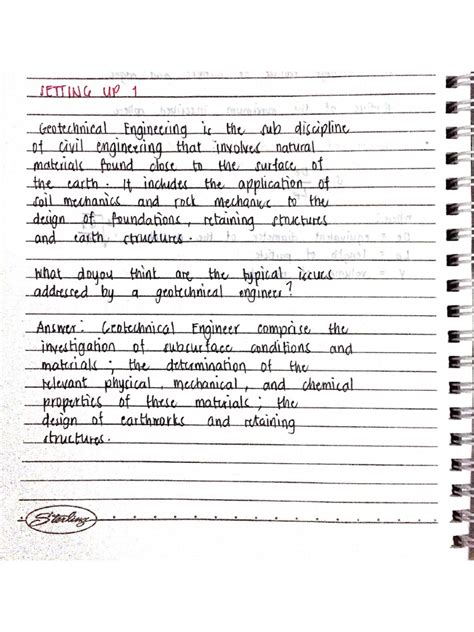 SETTING UP 1
Geotechnical Engineering is the sub discipline
of civil engineering that involves natural
materials found close to the surface of
the earth. It includes the application of
soil mechanics and rock mechanics to the
design of foundations, retaining structures
and earth structures.
What doyou think are the typical issues
addressed by a geotechnical engineer?
Answer: Geotechnical Engineer comprise the
investigation of subsurface conditions and
materials; the determination of the
relevant physical, mechanical, and chemical
properties of these materials; the
design of earthworks and retaining
structures.
Sterling